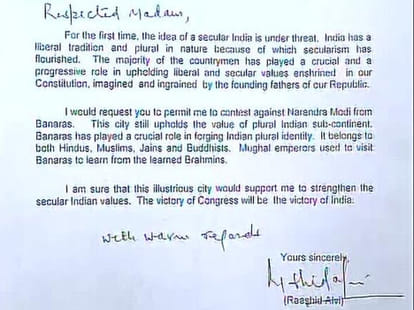 Respected Madam,
For the first time, the idea of a secular India is under threat. India has a
liberal tradition and plural in nature because of which secularism has
flourished. The majority of the countrymen has played a crucial and a
progressive role in upholding liberal and secular values enshrined in our
Constitution, imagined and ingrained by the founding fathers of our Republic.
I would request you to permit me to contest against Narendra Modi from
Banaras. This city still upholds the value of plural Indian sub-continent.
Banaras has played a crucial role in forging Indian plural identity. It belongs to
both Hindus, Muslims, Jains and Buddhists. Mughal emperors used to visit
Banaras to learn from the learned Brahmins.
I am sure that this illustrious city would support me to strengthen the
secular Indian values. The victory of Congress will be the victory of India.
with warm regards
Yours sincerely,
(Raashid Alvi)